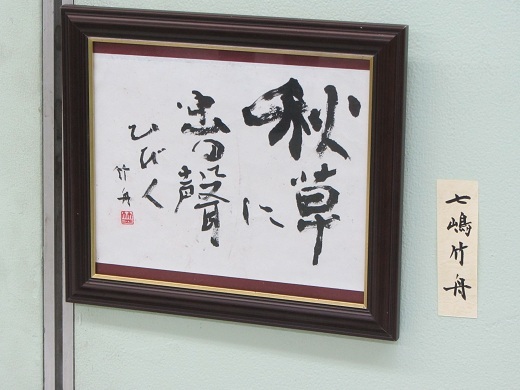 秋草に
虫の聲
ひびく
竹舟
七嶋竹舟